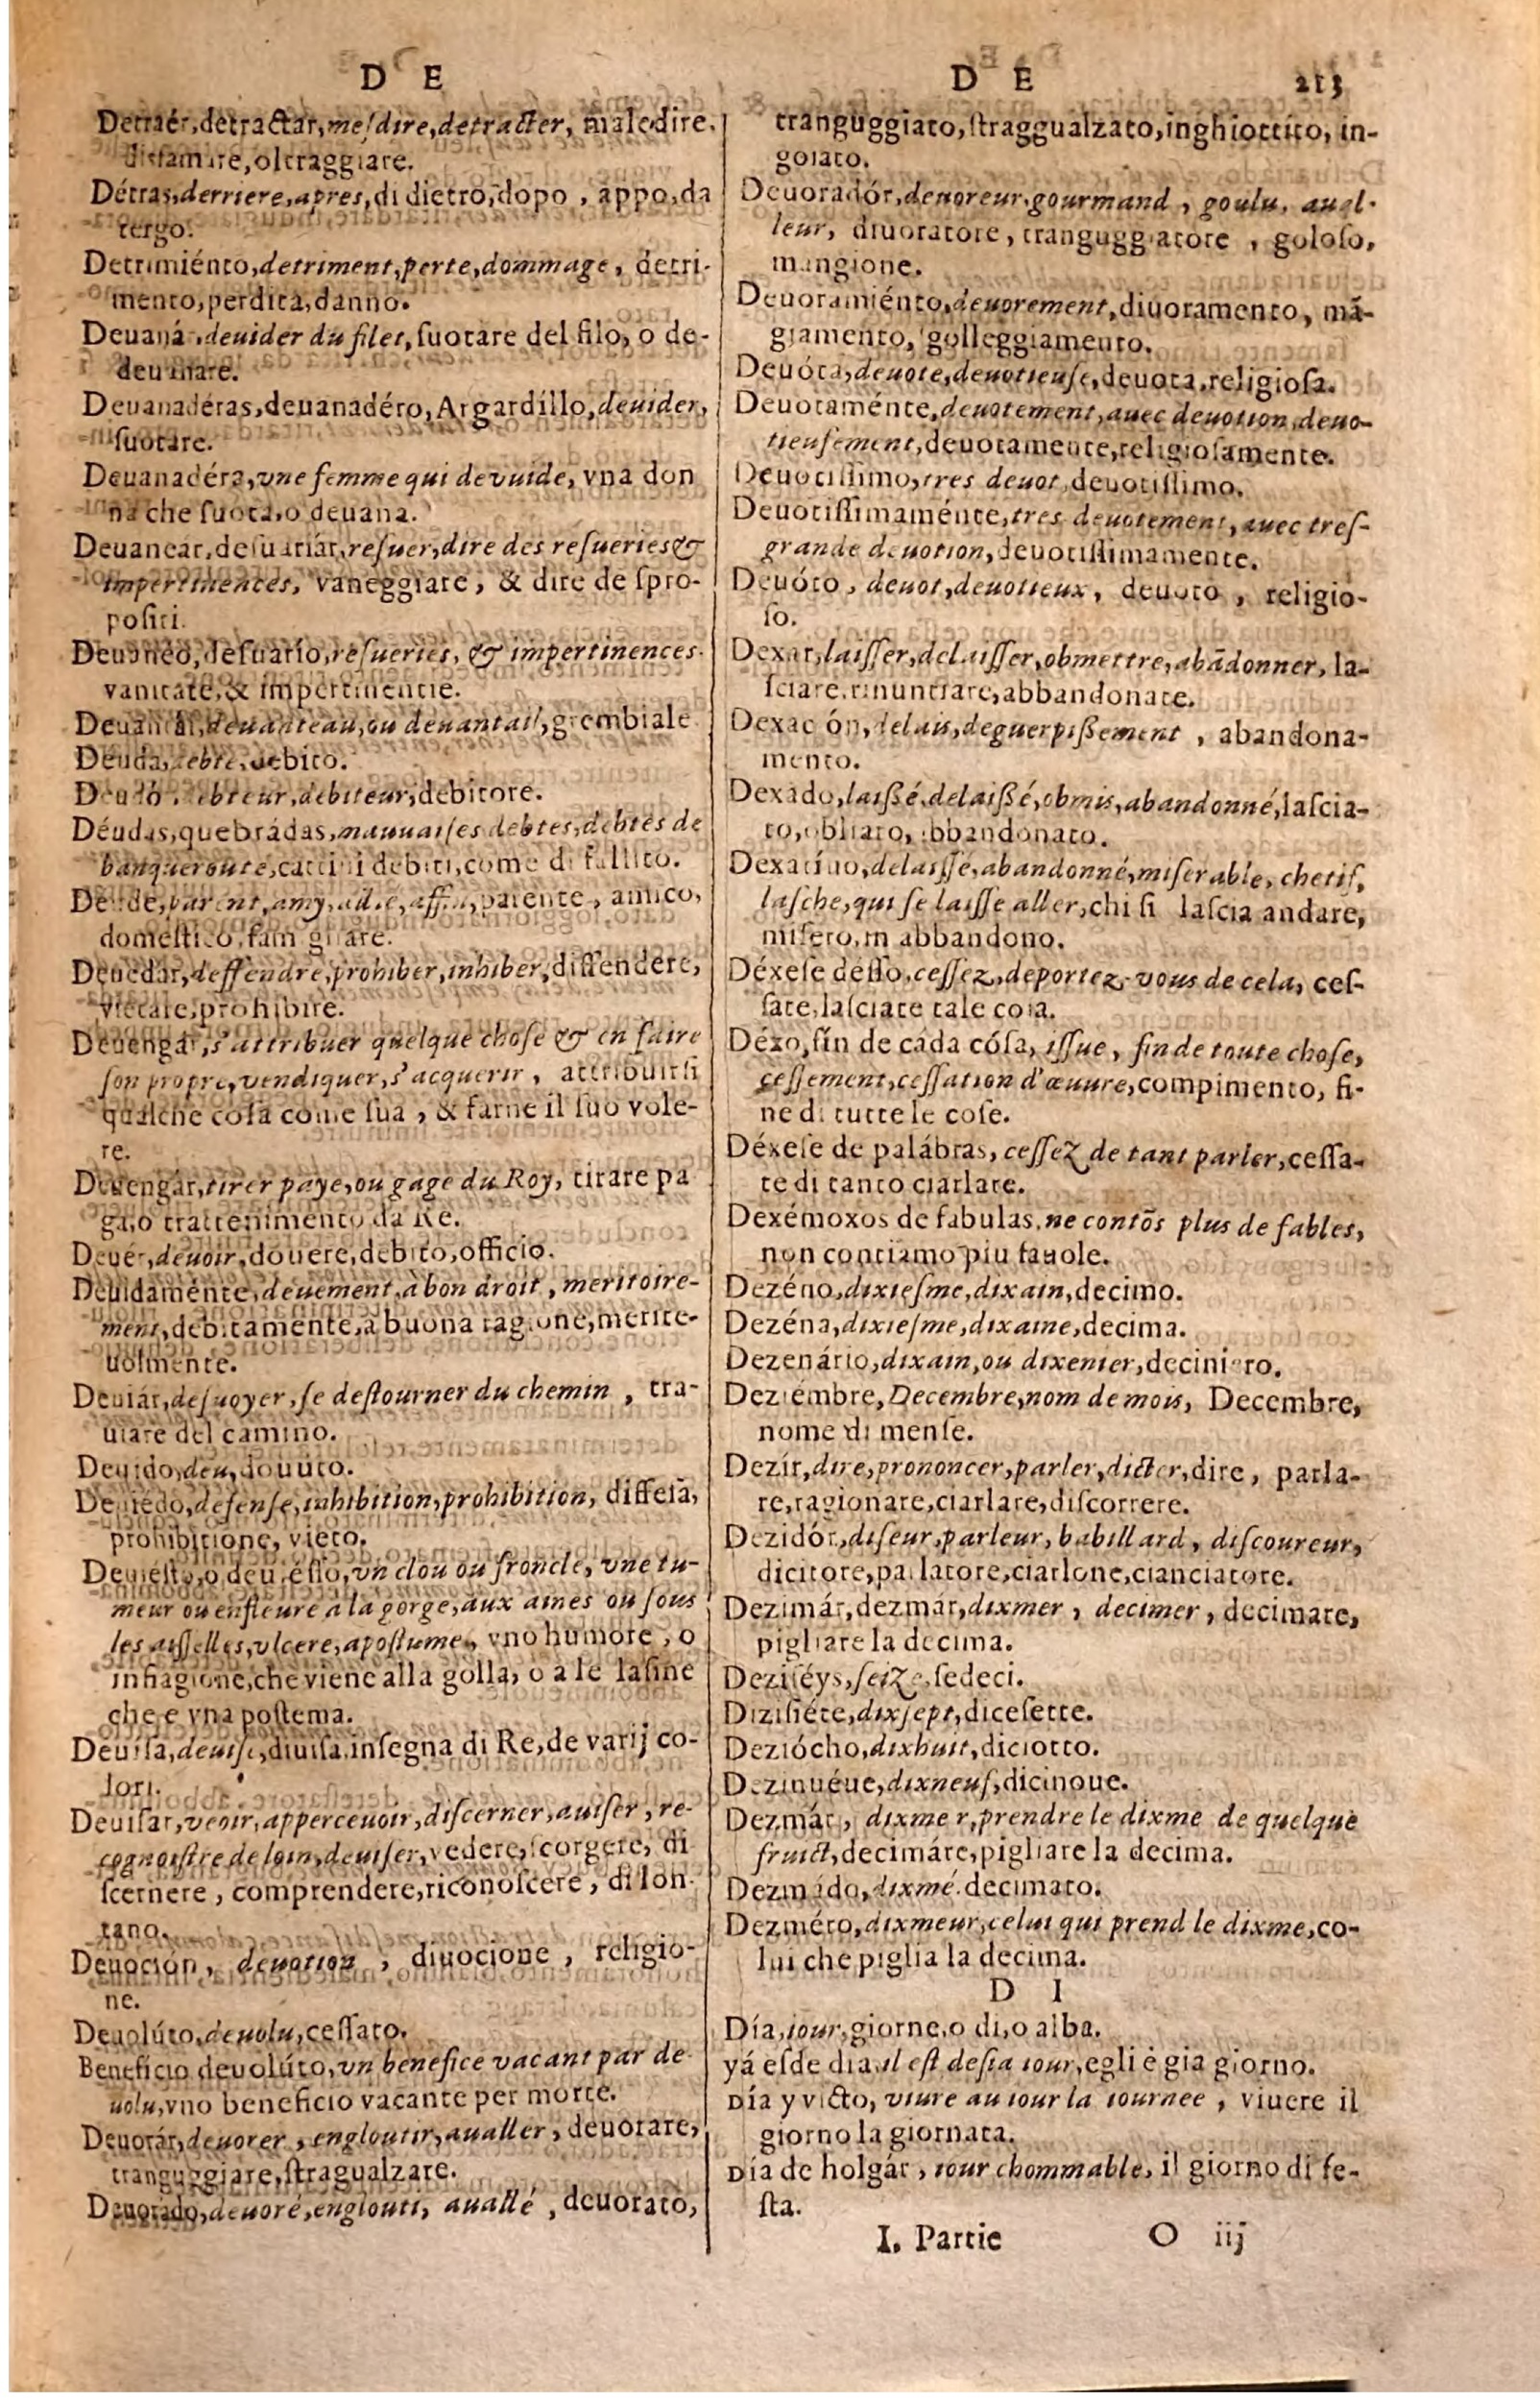 D E
Detraér, detractar, mesdire, detracter, maledire,
disfamare, oltraggiare.
Détras, derriere, apres, di dietro, dopo, appo, da
tergo.
Detrimiénto, detriment, perte, dommage, detri-
mento, perdita, danno.
Deuaná, deuider du filet, ſuotare del filo, o de-
deuanare.
Deuanadéras, deuanadéro, Argardillo, deuider,
ſuotare.
Deuanadéra, vne femme qui devuide, vna don
na che ſuota, o deuana.
Deuanear, deſuariár, reſuer, dire des reſueries &
impertinences, vaneggiare, & dire de ſpro-
poſiti.
Deuanéo, deſuarío, reſueries, & impertinences.
vanitate, & impertinentie.
Deuantál, deuanteau, ou deuantail, grembiale
Deuda, debte, debito.
debteur, debiteur, debitore.
Déudas, quebrádas, mauuaiſes debtes, debtes de
banqueroute, cattiui debiti, come di fallito.
parent, amy, parente, amico,
domeſtico, famigliare.
Deuedár, deffendre, prohiber, inhiber, diffendere,
vietare, prohibire.
Deuengár, s'attribuer quelque choſe & en faire
ſon propre, vendiquer, s'acquerir, attribuirſi
qualche coſa come ſua, & farne il ſuo vole-
re.
Deuengár, tirer paye, ou gage du Roy, tirare pa
ga, o trattenimento da Re.
Deuér, deuoir, douere, debito, officio.
Deuidaménte, deuement, à bon droit, meritoire-
ment, debitamente, a buona ragione, merite-
uolmente.
Deuiár, deſuoyer, ſe deſtourner du chemin, tra-
uiare del camino.
Deuido, deu, douuto.
Deuiédo, defenſe, inhibition, prohibition, differã,
prohibitione, vieto.
Deuiéſto, o deuiéſſo, vn clou ou froncle, vne tu-
meur ou enfleure a la gorge, aux aines ou ſous
les aiſſelles, vlcere, apoſtume, vno humore, o
infiagione, che viene alla golla, o a le laſine
che e vna poſtema.
Deuiſa, deuiſe, diuiſa, inſegna di Re, de varij co-
lori.
Deuiſar, veoir, apperceuoir, diſcerner, auiſer, re-
cognoiſtre de loin, deuiſer, vedere, ſcorgere, di
ſcernere, comprendere, riconoſcere, di lon-
tano.
Deuoción, deuotion, diuocione, religio-
ne.
Deuolúto, deuolu, ceſſato.
Beneficio deuolúto, vn benefice vacant par de
uolu, vno beneficio vacante per morte.
Deuorár, deuorer, engloutir, aualler, deuorare,
tranguggiare, ſtragualzare.
Deuorádo, deuoré, englouti, auallé, deuorato,
D E 213
tranguggiato, ſtraggualzato, inghiottito, in-
goiato.
Deuoradór, deuoreur, gourmand, goulu, aual-
leur, diuoratore, tranguggiatore, goloſo,
mangione.
Deuoramiénto, deuorement, diuoramento, mã-
giamento, golleggiamento.
Deuóta, deuote, deuotieuſe, deuota, religioſa.
Deuotaménte, deuotement, auec deuotion, deuo-
tieuſement, deuotamente, religioſamente.
Deuotiſſimo, tres deuot, deuotiſſimo.
Deuotiſſimaménte, tres deuotement, auec treſ-
grande deuotion, deuotiſſimamente.
Deuóto, deuot, deuotieux, deuoto, religio-
ſo.
Dexar, laiſſer, delaiſſer, obmettre, abãdonner, la-
ſciare, rinuntiare, abbandonare.
Dexación, delais, deguerpiſſement, abandona-
mento.
Dexádo, laiſſé, delaiſſé, obmis, abandonné, laſcia-
to, obliato, abbandonato.
Dexatíuo, delaiſſé, abandonné, miſerable, chetif,
laſche, qui ſe laiſſe aller, chi ſi laſcia andare,
miſero, in abbandono.
Déxeſe déſſo, ceſſez, deportez-vous de cela, ceſ-
ſate, laſciate tale coſa.
Déxo, fin de cáda cóſa, iſſue, fin de toute choſe,
ceſſement, ceſſation d'œuure, compimento, fi-
ne di tutte le coſe.
Déxeſe de palábras, ceſſez de tant parler, ceſſa-
te di tanto ciarlare.
Dexémoxos de fabulas, ne contõs plus de fables,
non contiamo piu fauole.
Dezéno, dixieſme, dixain, decimo.
Dezéna, dixieſme, dixaine, decima.
Dezenário, dixain, ou dixenier, deciniero.
Deziémbre, Decembre, nom de mois, Decembre,
nome di menſe.
Dezír, dire, prononcer, parler, dicter, dire, parla-
re, ragionare, ciarlare, diſcorrere.
Dezidór, diſeur, parleur, babillard, diſcoureur,
dicitore, parlatore, ciarlone, cianciatore.
Dezimár, dezmár, dixmer, decimer, decimare,
pigliare la decima.
Deziſéys, ſeize, ſedeci.
Diziſiéte, dixſept, diceſette.
Deziócho, dixhuit, diciotto.
Dezinuéue, dixneuf, dicinoue.
Dezmár, dixmer, prendre le dixme de quelque
fruict, decimáre, pigliare la decima.
Dezmádo, dixmé, decimato.
Dezméro, dixmeur, celui qui prend le dixme, co-
lui che piglia la decima.
D I
Día, iour, giorne, o di, o alba.
yá eſde dia, il eſt deſia iour, egli è gia giorno.
Día y victo, viure au iour la iournee, viuere il
giorno la giornata.
Día de holgár, iour chommable, il giorno di fe-
ſta.
I. Partie O iij